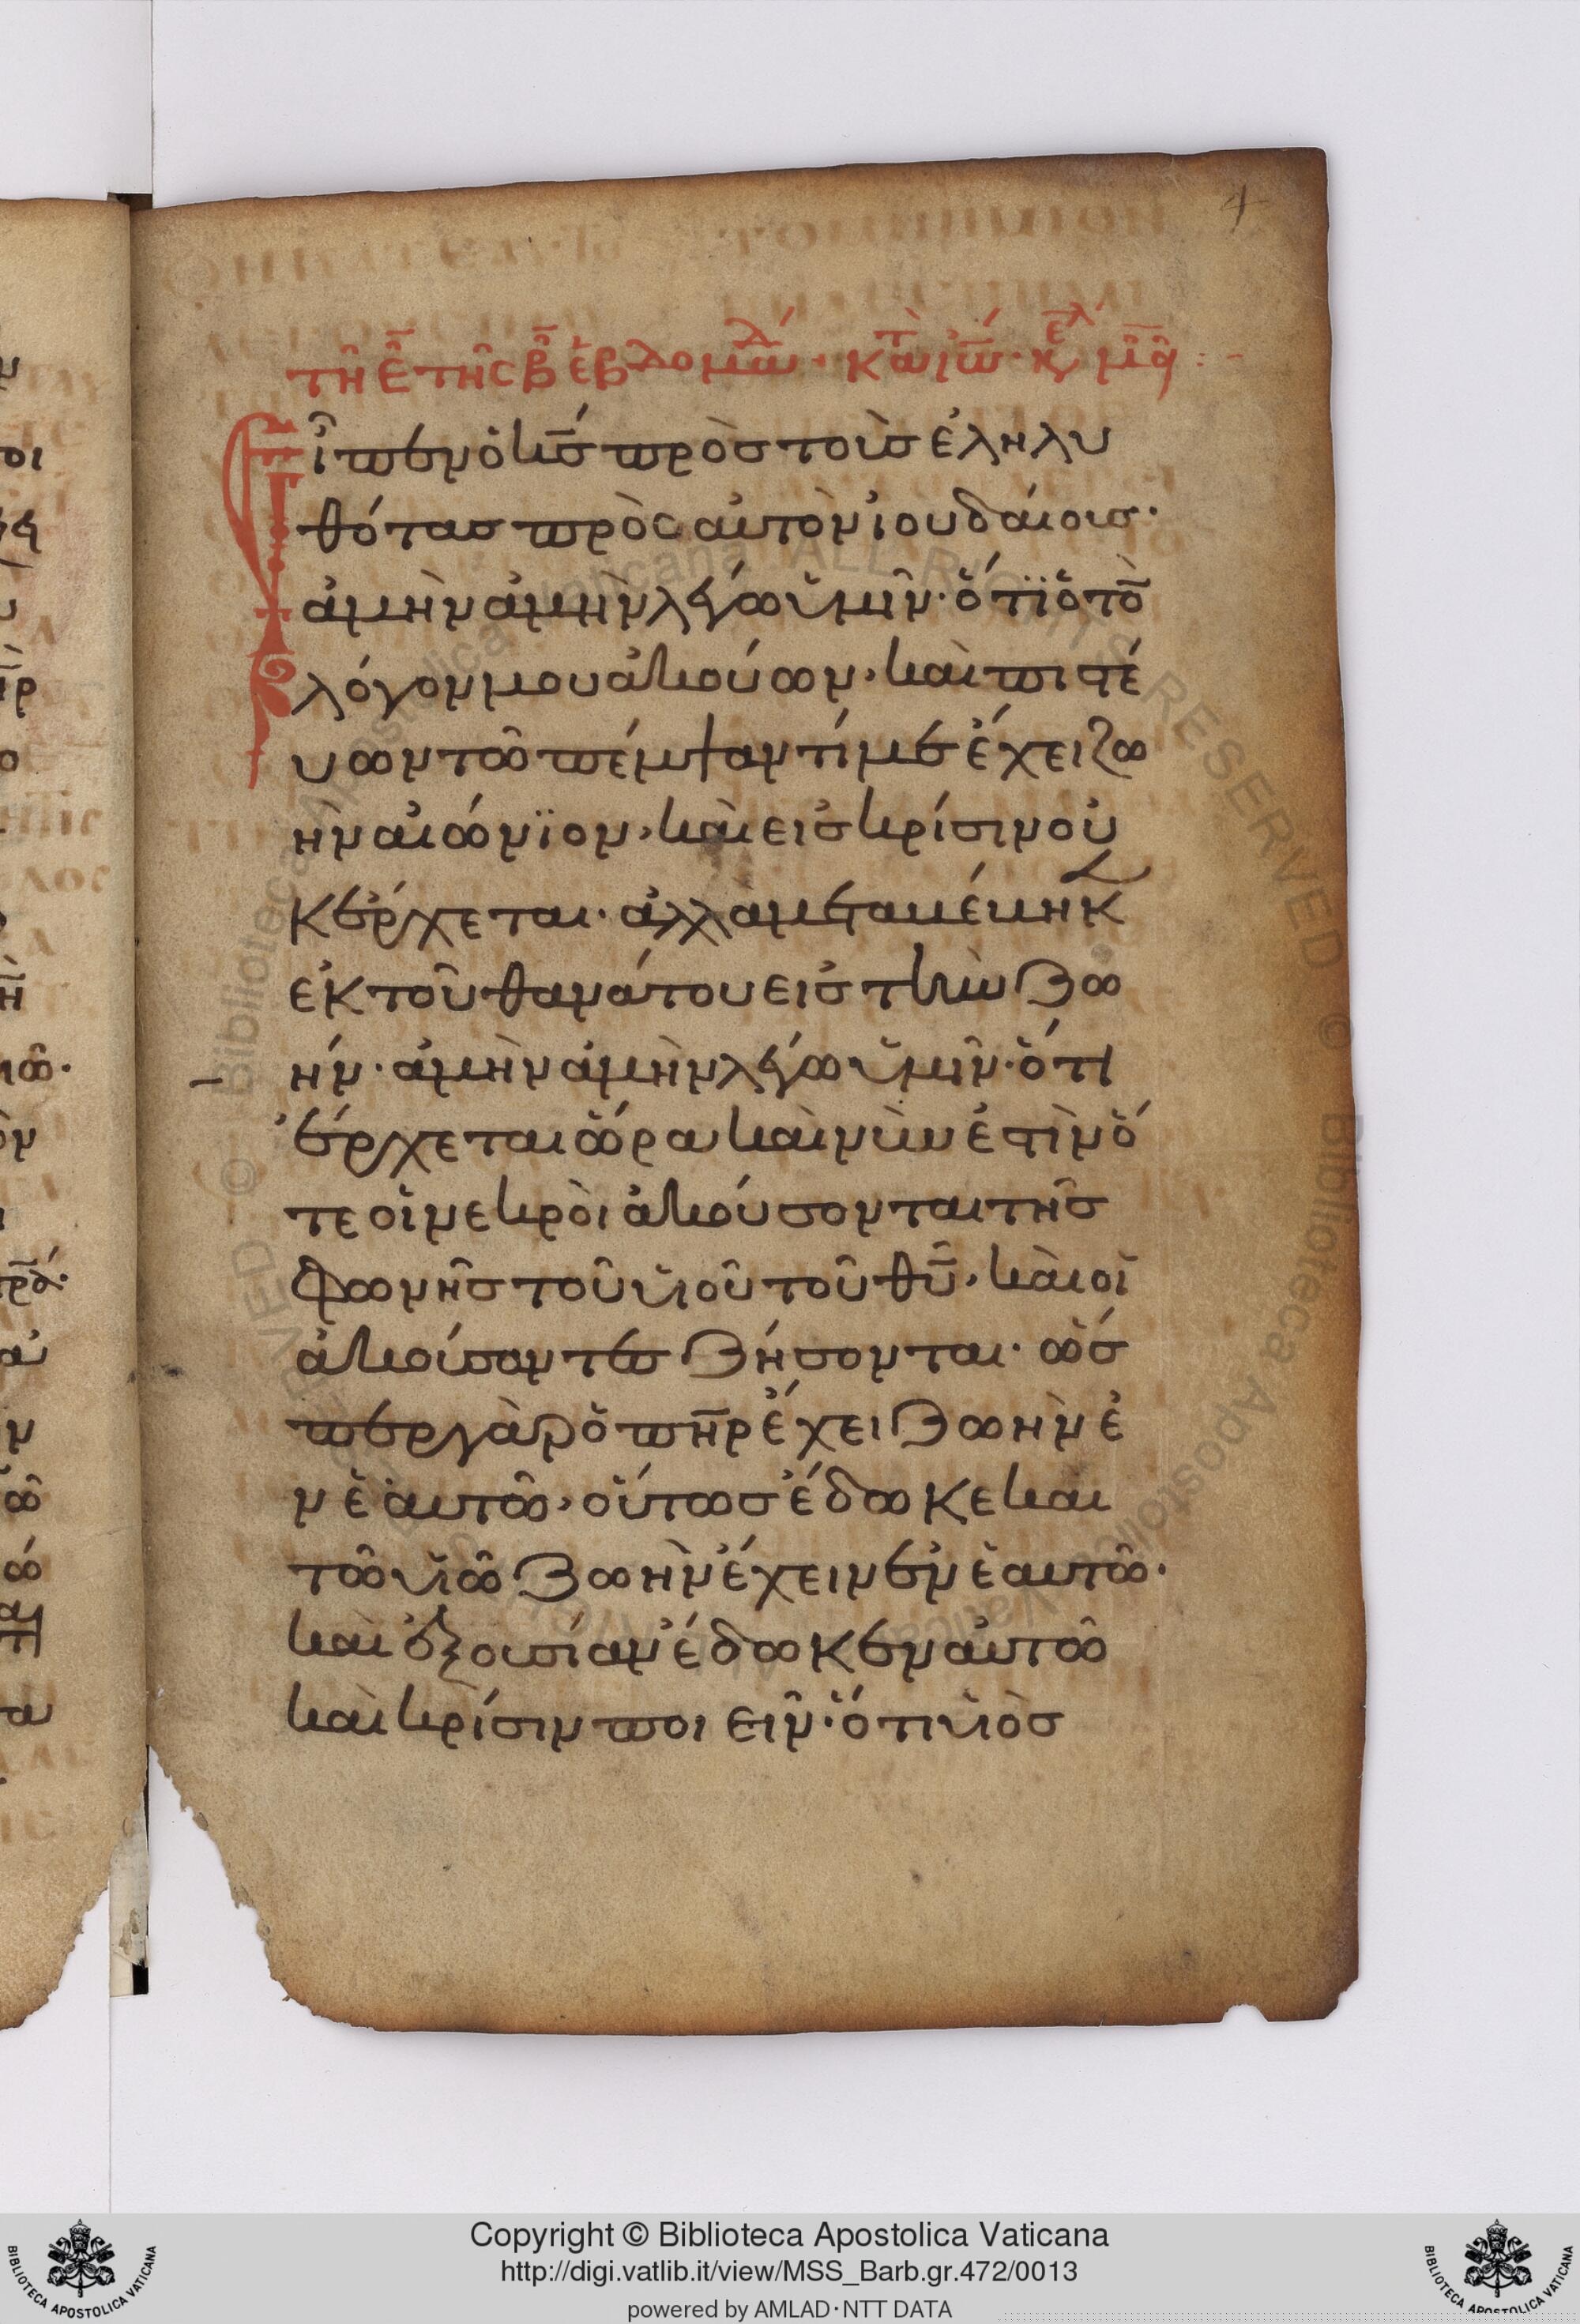 4
τῆ ε̄ τῆς β̄ ἑβδομάδ· κτ ἰω· κε μθ:-
Εἶπεν ὁ κ̄ς πρὸς τοὺς ἐληλυ
θότας πρὸς αὐτὸν ἰουδαίους·
ἀμὴν ἀμὴν λέγω ὑμῖν· ὅτϊ ὁ τὸ̄
λόγον μου ἀκούων, καὶ πιστέ
υων τῶ πέμψαντί με ἔχει ζω
ὴν αἰώνϊον, καὶ εἰς κρίσιν οὐ
κ ἔρχεται· ἀλλὰ μεταβέβηκ
ἐκ τοῦ θανάτου εἰς τὴν ζω
ήν· ἀμὴν ἀμὴν λέγω ὑμῖν· ὅτι
ἔρχεται ὥρα καὶ νῦν ἐστὶν ὅ
τε οἱ νεκροὶ ἀκούσονται τῆς
φωνῆς τοῦ υἱοῦ τοῦ θ̄υ, καὶ οἱ
ἀκούσαντες ζήσονται· ὥσ
περ γὰρ ὁ πη̄ρ ἔχει ζωὴν ἐ
ν ἑαυτῶ, οὕτως ἔδωκε καὶ
τῶ υἱῶ ζωὴν ἔχειν ἐν ἑαυτῶ·
καὶ ἐξουσίαν ἔδωκεν αὐτῶ
καὶ κρίσιν ποιεῖν· ὅτι υἱὸς
Copyright © Biblioteca Apostolica Vaticana
http://digi.vatlib.it/view/MSS_Barb.gr.472/0013
powered by AMLAD·NTT DATA